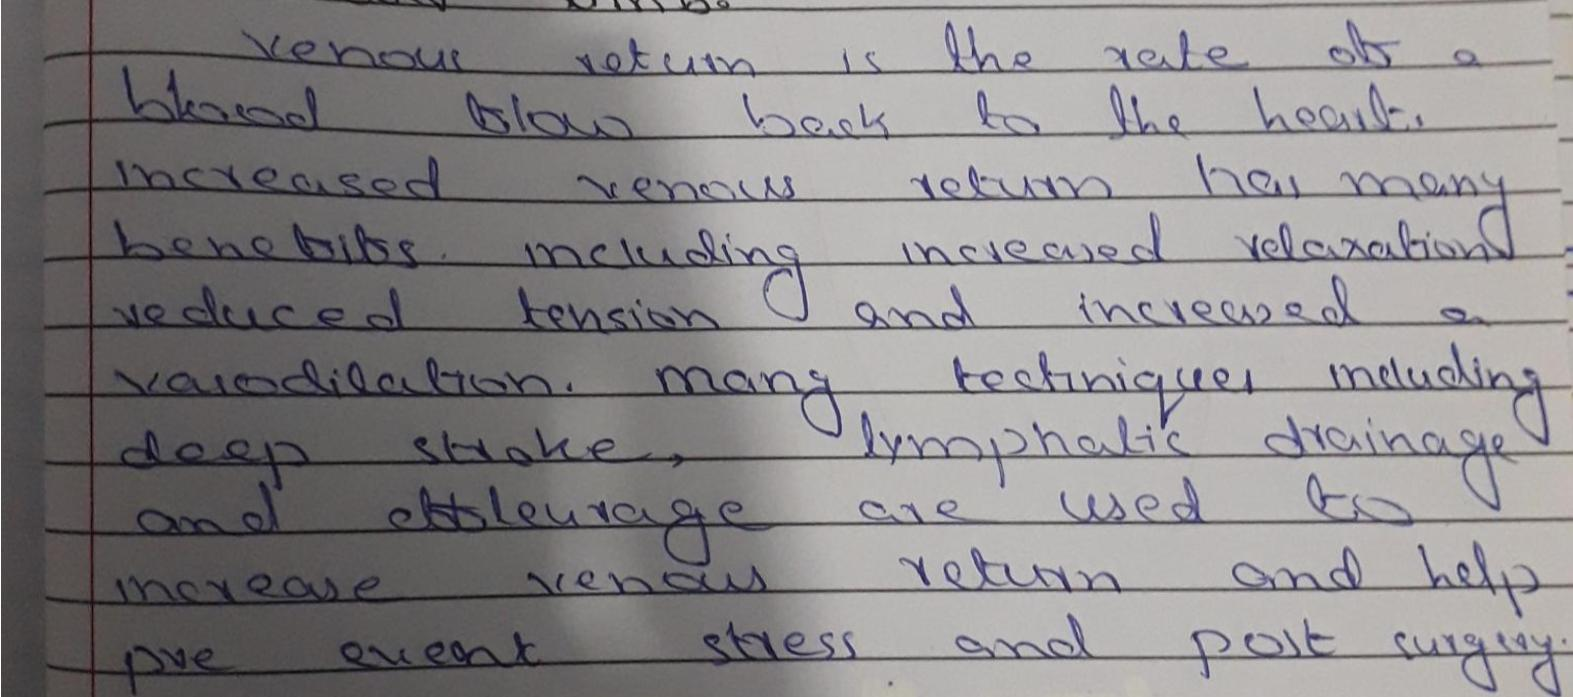 venous return is the rate of a
blood flow back to the heart.
increased venous return has many
benefits. including increased relaxation
reduced tension and increased a
vasodilation. many techniques including
deep stroke, lymphatic drainage
and effleurage are used to
increase venous return and help
pre event stress and post surgery.